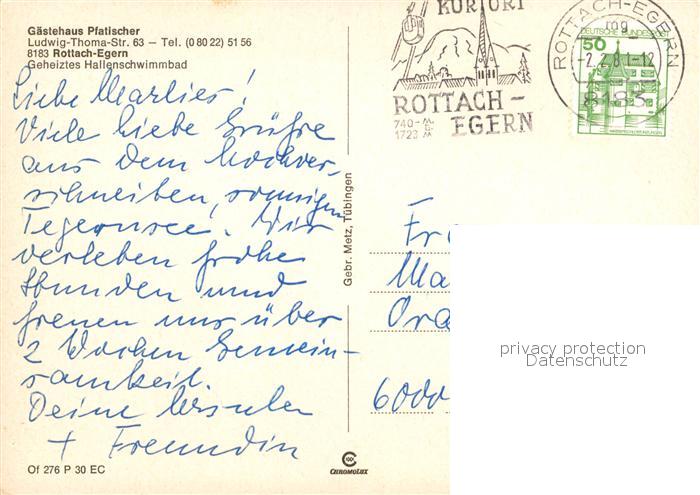 Gästehaus Pfatischer
Ludwig-Thoma-Str. 63 – Tel. (0 80 22) 51 56
8183 Rottach-Egern
Geheiztes Hallenschwimmbad
Liebe Marlies!
Viele liebe Grüße
aus dem hochver-
schneiten, sonnigen
Tegernsee. Wir
verleben frohe
Stunden und
freuen uns über
2 Wochen Gemein-
samkeit.
Deine Ursula
+ Freundin
Of 276 P 30 EC
Gebr. Metz, Tübingen
CHROMOLUX
KURORT
ROTTACH-
EGERN
740-
1723 m
ROTTACH-EGERN
mg
-2.2.81-12
8183
DEUTSCHE BUNDESPOST
50
Fr
Ma
Ora
6000
privacy protection
Datenschutz